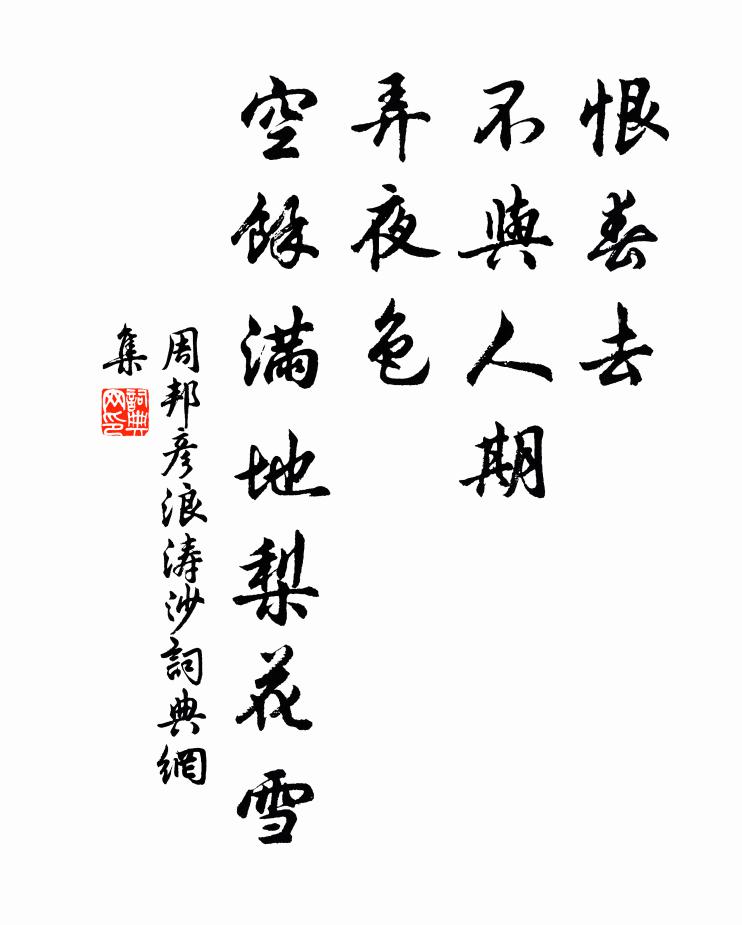 恨春去
不與人期
弄夜色
空餘滿地梨花雪
周邦彦浪涛沙詞典網
集
詞典
网印